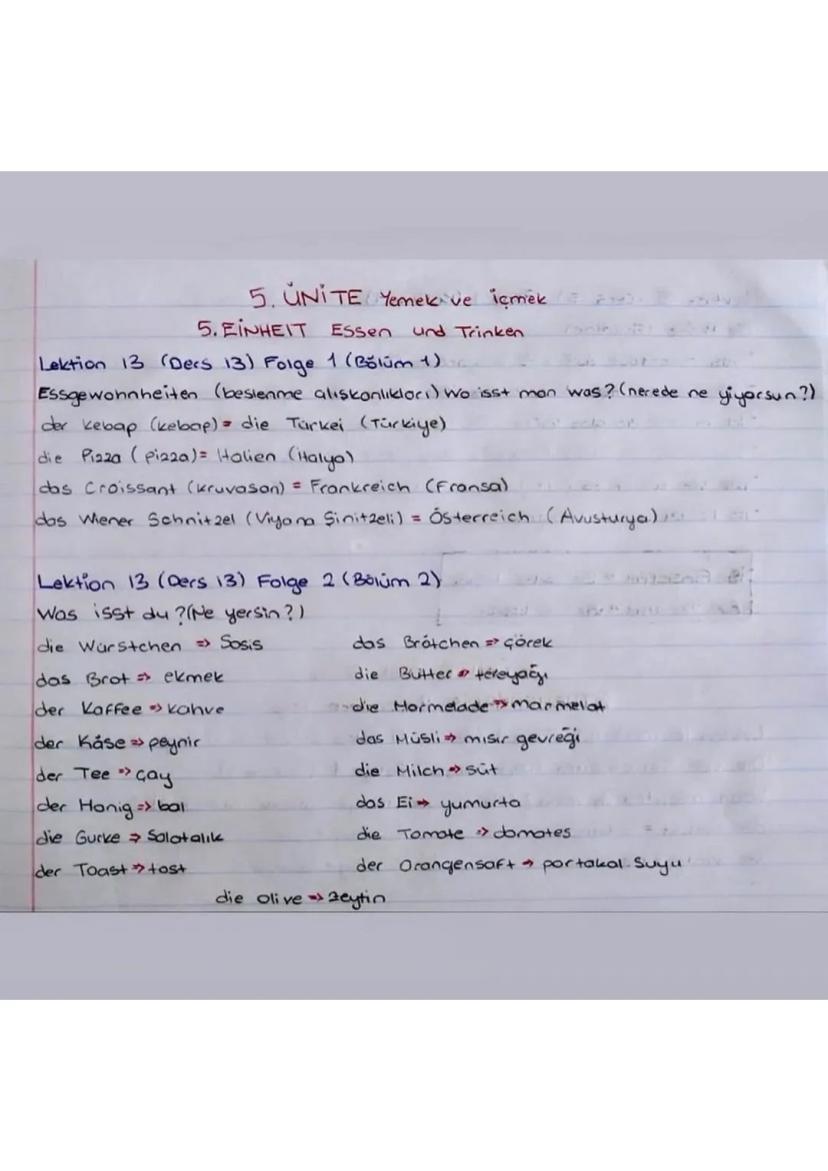 5. ÜNİTE Yemek ve içmek
5. EİNHEIT Essen und Trinken
Lektion 13 (Ders 13) Folge 1 (Bölüm 1)
Essgewohnheiten (beslenme alışkanlıkları) Wo isst man was? (nerede ne yiyorsun?)
der Kebap (kebap) = die Türkei (Türkiye)
die Pizza (pizza) = Italien (İtalya)
das Croissant (kruvasan) = Frankreich (Fransa)
das Wiener Schnitzel (Viyana Şinitzeli) = Österreich (Avusturya)
Lektion 13 (Ders 13) Folge 2 (Bölüm 2)
Was isst du? (Ne yersin?)
die Würstchen => Sosis das Brötchen => çörek
das Brot => ekmek die Butter => tereyağı
der Kaffee => kahve die Marmelade => marmelat
der Käse => peynir das Müsli => mısır gevreği
der Tee => çay die Milch => süt
der Honig => bal das Ei => yumurta
die Gurke => Salatalık die Tomate => domates
der Toast => tost der Orangensaft => portakal suyu
die Olive => zeytin